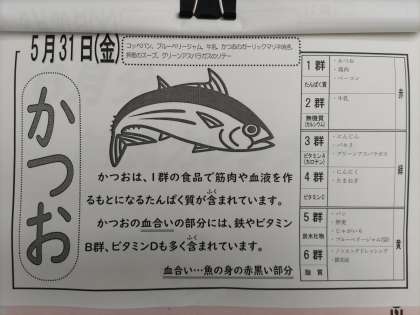 5月31日(金)
コッペパン、ブルーベリージャム、牛乳、かつおのガーリックマリネ焼き、
野菜のスープ、グリーンアスパラガスのソテー
かつお
かつおは、1群の食品で筋肉や血液を作
るもとになるたんぱく質が含まれています。
ふく
かつおの血合いの部分には、鉄やビタミン
B群、ビタミンDも多く含まれています。
ふく
血合い…魚の身の赤黒い部分
1群
たんぱく質
・かつお
・鶏肉
・ベーコン
2群
無機質
(カルシウム)
・牛乳
赤
3群
ビタミンA
(カロテン)
・にんじん
・パセリ
・グリーンアスパラガス
4群
ビタミンC
・にんにく
・たまねぎ
緑
5群
炭水化物
・パン
・砂糖
・じゃがいも
・ブルーベリージャム
6群
脂質
黄